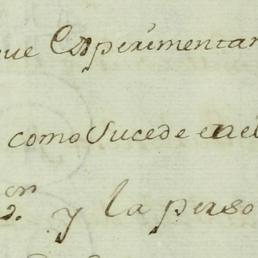 que Experimentan
como Sucede en el
y la perso